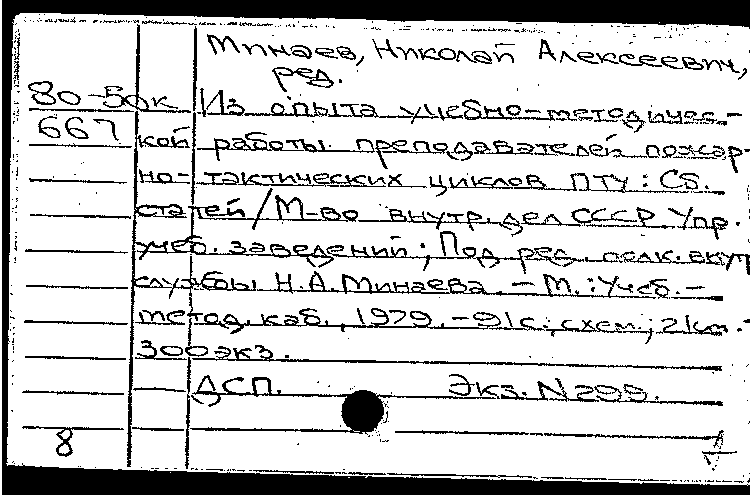 Минаев, Николай Алексеевич,
ред.
80-5дк Из опыта учебно-методичес-
667 кой работы преподавателей пожар-
но-тактических циклов ПТУ: Сб.
статей/М-во внутр. дел СССР. Упр.
учеб. заведений; Под ред. полк. внутр
службы Н.А. Минаева. - М.: Учеб.-
метод. каб., 1979. - 91 с.: схем.; 21 см. -
300 экз.
ДСП. Экз. N 299.
8